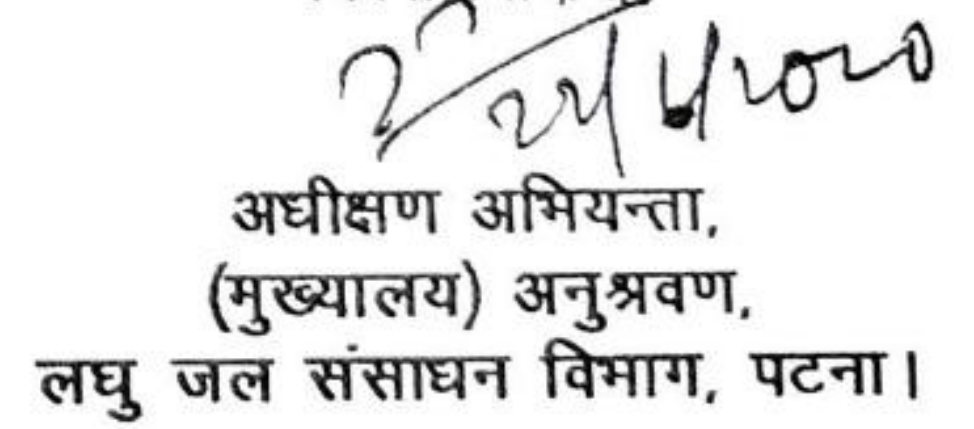 अधीक्षण अभियन्ता,
(मुख्यालय) अनुश्रवण,
लघु जल संसाधन विभाग, पटना।